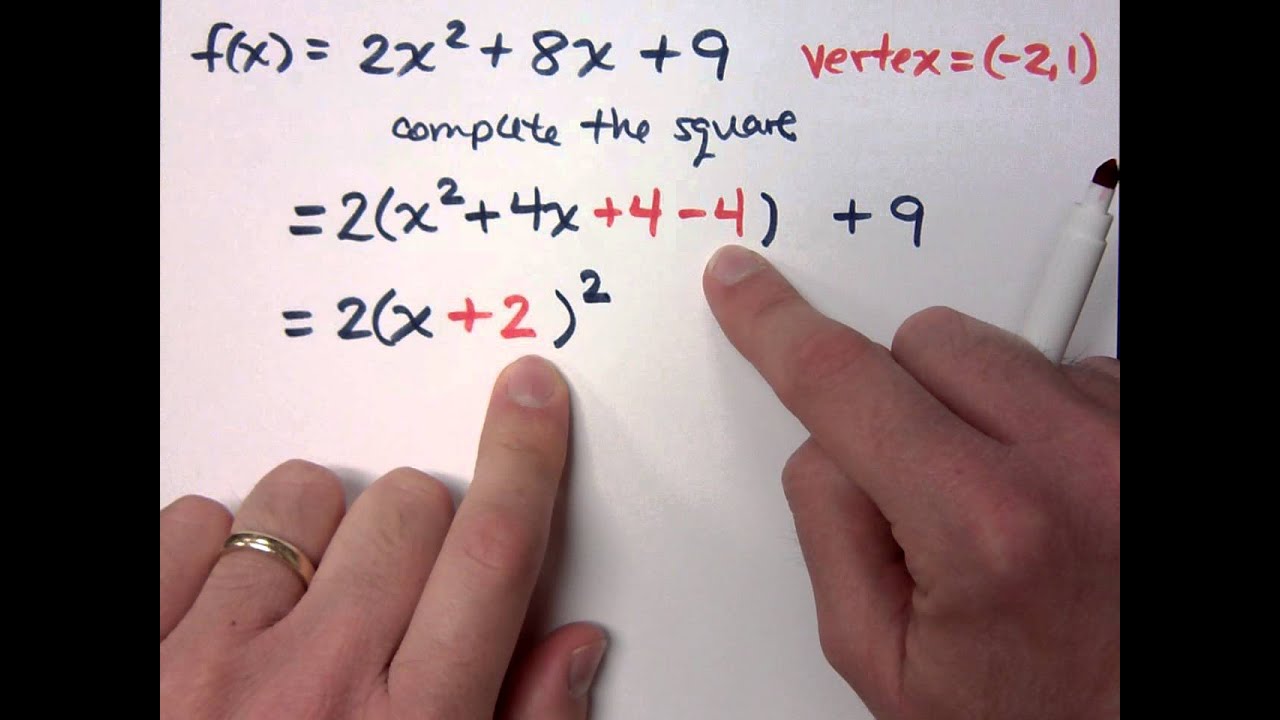 f(x) = 2x² + 8x + 9 vertex = (-2,1)
complete the square
= 2(x² + 4x + 4 - 4) + 9
= 2(x + 2)²